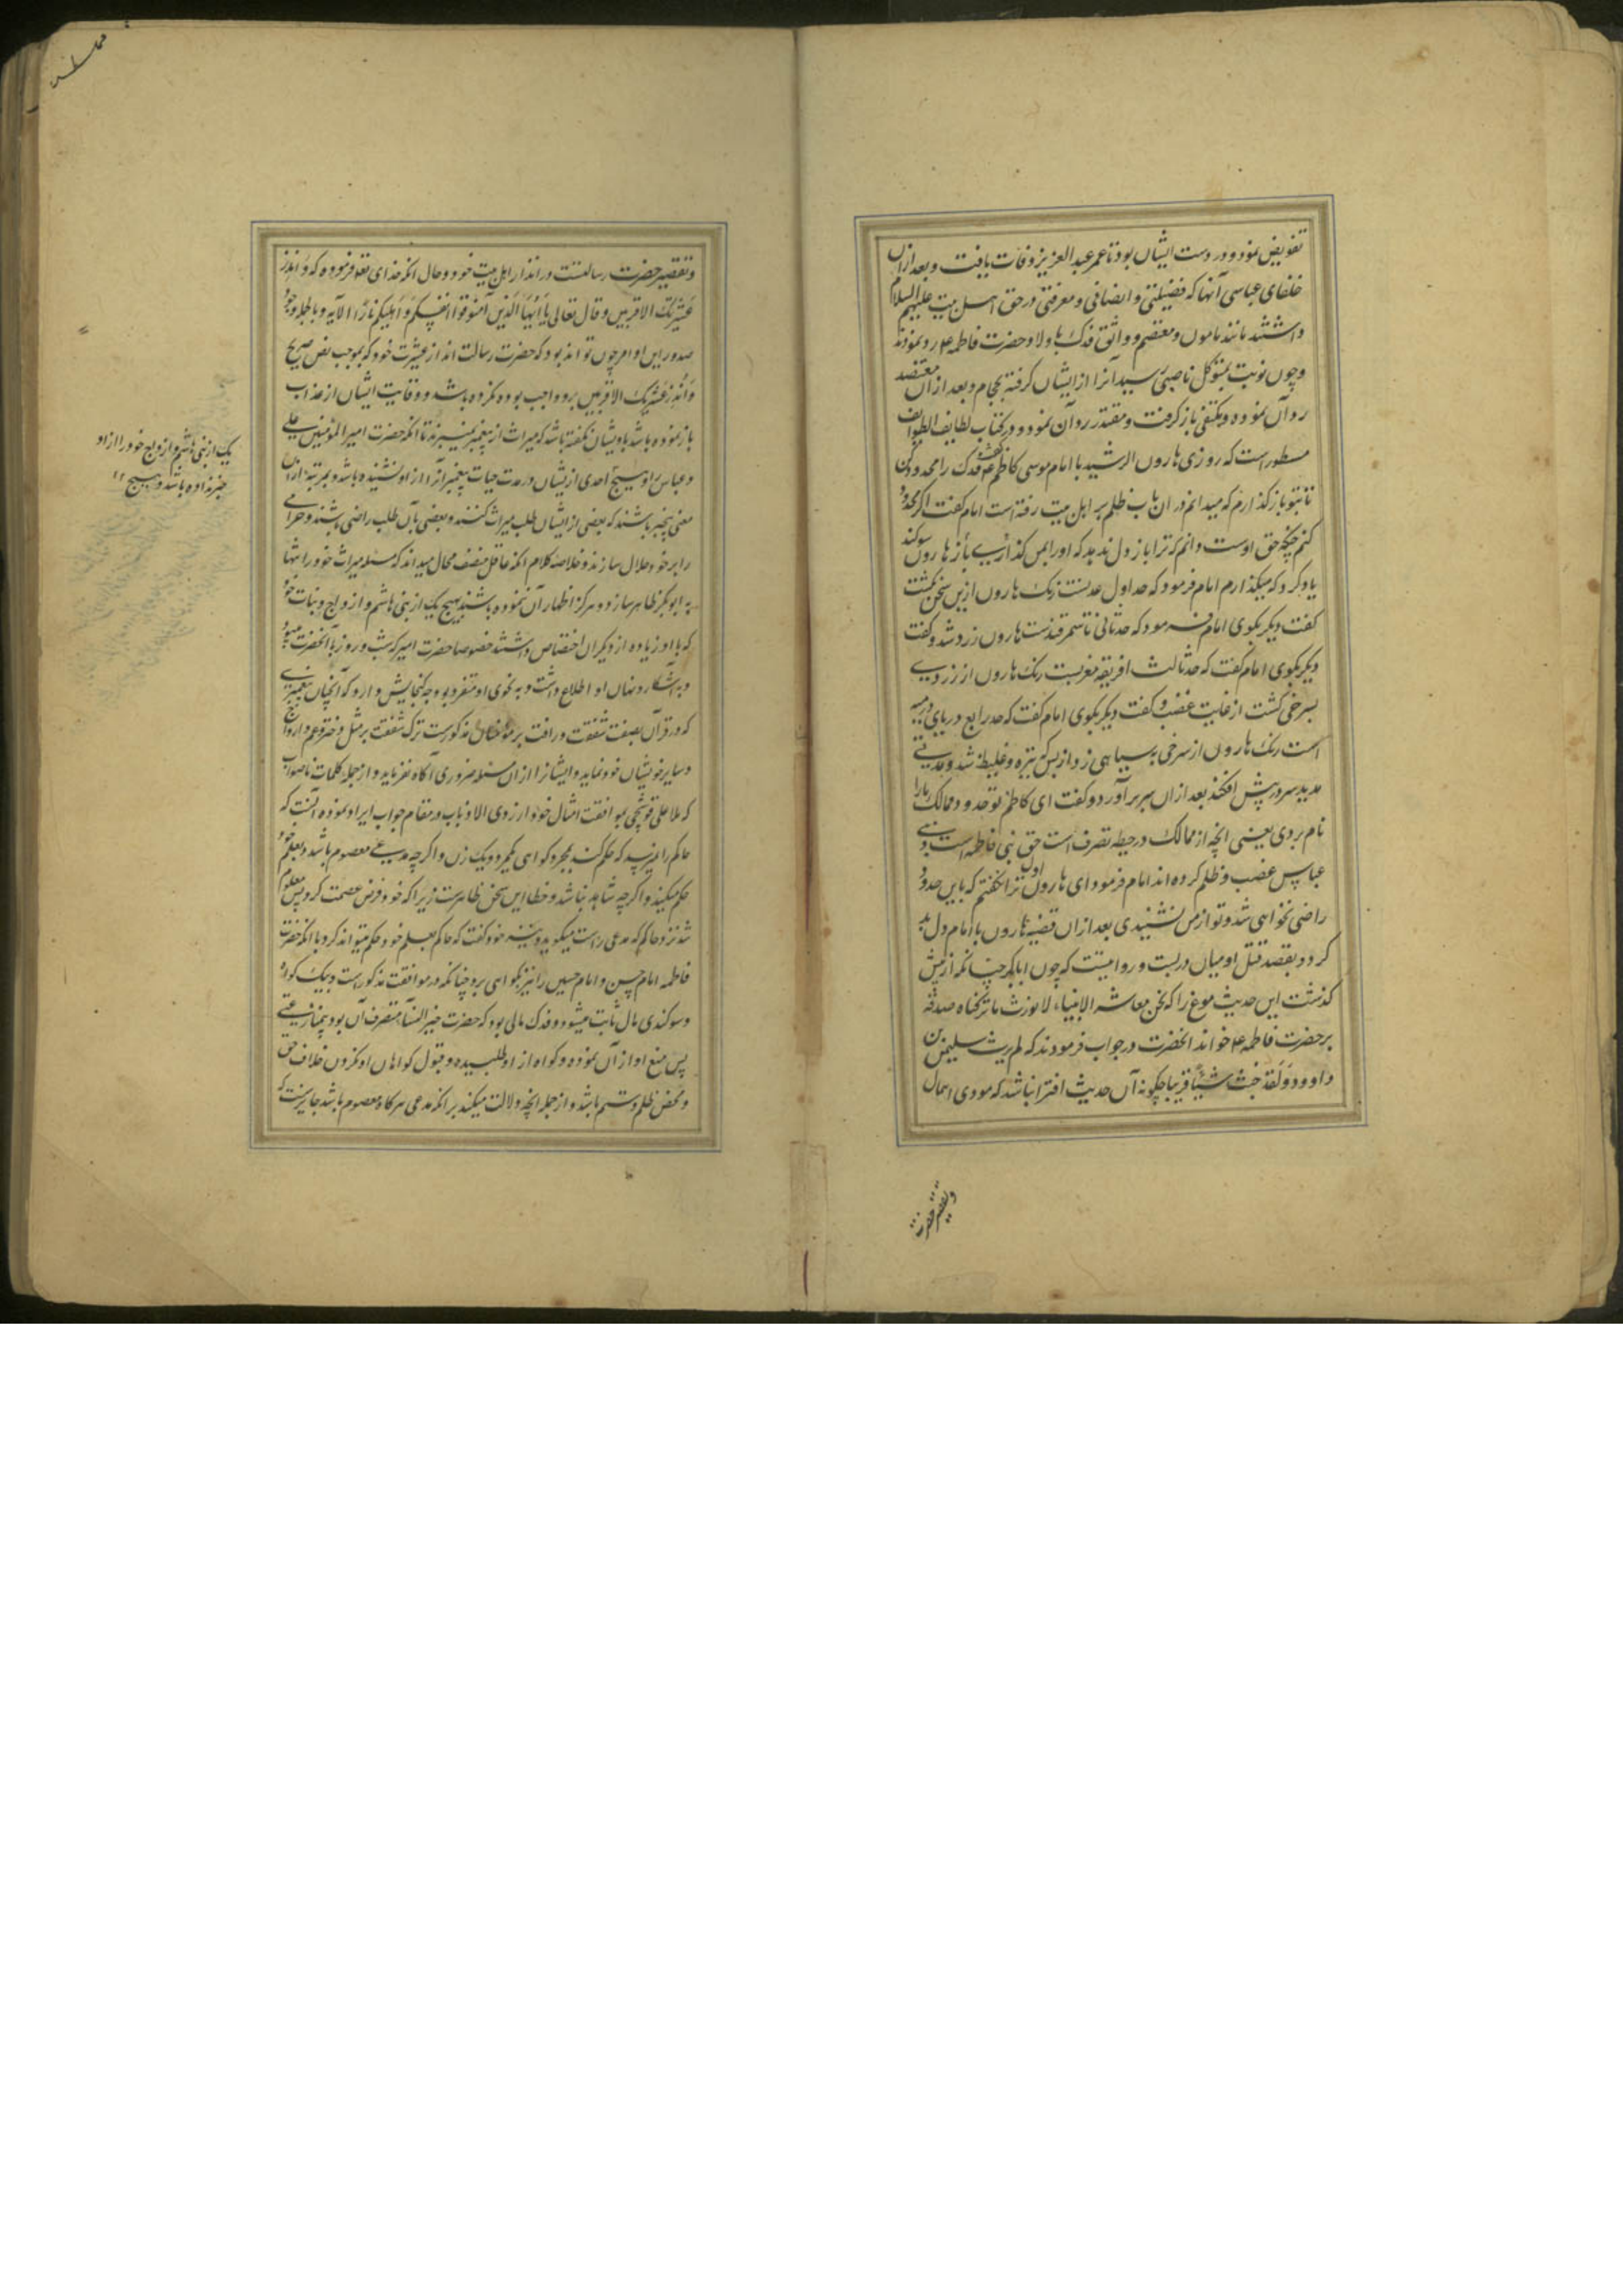 تفویض نمود و در دست ایشان بود تا عمر عبد العزیز وفات یافت و بعد ازان
خلفای عباسی آنها که فضیلتی و انصافی و معرفتی در حق اهل بیت علیهم السلام
داشتند مانند مامون و معتصم و واثق فدک باولاد حضرت فاطمه ع رد نمودند
و چون نوبت بمتوکل ناصبی رسید آنرا از ایشان گرفته بحجام و بعد ازان معتضد
رد آن نموده و مکتفی باز گرفت و مقتدر رد آن نمود و در کتاب لطایف الطوایف
مسطور است که روزی هارون الرشید با امام موسی کاظم ع گفت فدک را محدود کن
تا بتو باز گذارم که میدانم در ان باب ظلم بر اهل بیت رفته است امام گفت اگر محدود
کنم چنانچه حق اوست دانم که ترا باز دل ندهد که اورا بمن گذاری باز هارون سوکند
یاد کرد که میگذارم امام فرمود که حد اول عدنست رنگ هارون ازین سخن بگشت
گفت دیگر بگوی امام فرمود که حد ثانی تا سمرقندست هارون زرد شد و گفت
دیگر بگوی امام گفت که حد ثالث افریقه مغربست رنگ هارون از زردی
بسرخی گشت از غایت غضب و گفت دیگر بگوی امام گفت که حد رابع دریای ارمنیه
است رنگ هارون از سرخی بسیاهی زد از بس که تیره و غلیظ شد و مدتی
مدید سر در پیش افکند بعد ازان سر بر آورد و گفت ای کاظم تو حدود ممالک ما را
نام بردی یعنی انچه از ممالک در حیطه تصرف است حق بنی فاطمه است و بنی
عباس غصب و ظلم کرده اند امام فرمود ای هارون اول ترا نگفتم که باین حدود
راضی نخواهی شد و تو از من نشنیدی بعد ازان قضیه هارون با امام دل بد
کرد و بقصد قتل او میان در بست و روایتست که چون ابابکر چنانکه از پیش
گذشت این حدیث موضوع را که نحن معاشر الانبیاء لا نورث ما ترکناه صدقة
بر حضرت فاطمه ع خواند انحضرت در جواب فرمودند که لم یرث سلیمن بن
داوود و لقد جئت شیئا فریا چگونه آن حدیث افترا نباشد که مودی اهمال
و تقصیر حضرت
و تقصیر حضرت رسالتست در انذار اهل بیت خود و حال انکه خدای تعالی فرموده که و انذر
عشیرتک الاقربین و قال تعالی یا ایها الذین آمنوا قوا انفسکم و اهلیکم نارا الآیه و بالجمله وجود
صدور این اوامر چون تواند بود که حضرت رسالت انذار عشیرت خود که بموجب نص صریح
و انذر عشیرتک الاقربین برو واجب بوده نکرده باشد و وقایت ایشان از عذاب
باز نموده باشد یا بایشان نگفته باشد که میراث از پیغمبر نمیبرند تا انکه حضرت امیر المؤمنین علی
و عباس را و هیچ احدی از ایشان در مدت حیات پیغمبر آنرا از او نشنیده باشد و بمرتبه ازان
معنی بیخبر باشند که بعضی از ایشان طلب میراث کنند و بعضی بآن طلب راضی باشند و حرامی
را بر خود حلال سازند و خلاصه کلام انکه عاقل منصف محال میداند که مسئله میراث خود را تنها
به ابوبکر ظاهر سازد و هرگز اظهار آن ننموده باشد بهیچ یک از بنی هاشم و ازواج و بنات خود
که با او زیاده از دیگران اختصاص داشتند خصوصا حضرت امیر که شب و روز با انحضرت میبود
و به آشکار و نهان او اطلاع داشت و به نجوی او متفرد بود چه گنجایش دارد که آنچنان پیغمبری
که در قرآن بصفت شفقت و رافت بر مؤمنان مذکورست ترک شفقت بر مثل دختر و عم و ازواج
و سایر خویشان خود نماید و ایشانرا ازان مسئله ضروری آگاه نفرماید و از جمله کلمات ناصواب
که ملا علی قوشجی بموافقت امثال خود از روی الاذناب در مقام جواب ایراد نموده آنست که
حاکم را نمیرسد که حکم کند بمجرد گواهی یکمرد و یک زن و اگرچه مدعی معصوم باشد و بعلم خود
حکم میکند و اگرچه شاهد نباشد و خطا این سخن ظاهرست زیرا که خود فرض عصمت کرد پس معلوم
شد نزد حاکم که مدعی راست میگوید و نیز خود گفت که حاکم بعلم خود حکم میتواند کرد با انکه حضرت
فاطمه امام حسن و امام حسین را نیز بگواهی برد چنانکه در موافقت مذکور است و بیک گواه
و سوگندی مال ثابت میشود و فدک مالی بود که حضرت خیر النساء متصرف آن بود بیمنازعتی
پس منع او از آن نموده و گواه از او طلبیده و قبول گواهان او نکردن خلاف حق
و محض ظلم و ستم باشد و از جمله انچه دلالت میکند بر انکه مدعی هر گاه معصوم باشد جایزست که
یک از بنی هاشم و ازواج خود را از او
خبر نداده باشد و هیچ